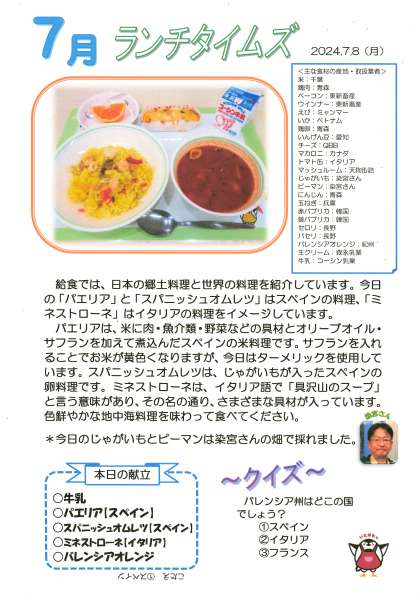 7月 ランチタイムズ
2024.7.8（月）
<主な食材の産地・取扱業者>
米：千葉
鶏肉：青森
ベーコン：東新畜産
ウインナー：東新畜産
えび：ミャンマー
いか：ベトナム
鶏卵：青森
いんげん豆：愛知
チーズ：QBB
マカロニ：カナダ
トマト缶：イタリア
マッシュルーム：天狗缶詰
じゃがいも：染宮さん
ピーマン：染宮さん
にんじん：青森
玉ねぎ：兵庫
赤パプリカ：韓国
黄パプリカ：韓国
セロリ：長野
パセリ：長野
バレンシアオレンジ：紀州
生クリーム：森永乳業
牛乳：コーシン乳業
給食では、日本の郷土料理と世界の料理を紹介しています。今日
の「パエリア」と「スパニッシュオムレツ」はスペインの料理、「ミ
ネストローネ」はイタリアの料理をイメージしています。
パエリアは、米に肉・魚介類・野菜などの具材とオリーブオイル・
サフランを加えて煮込んだスペインの米料理です。サフランを入れ
ることでお米が黄色くなりますが、今日はターメリックを使用して
います。スパニッシュオムレツは、じゃがいもが入ったスペインの
卵料理です。ミネストローネは、イタリア語で「具沢山のスープ」
と言う意味があり、その名の通り、さまざまな具材が入っています。
色鮮やかな地中海料理を味わって食べてください。
＊今日のじゃがいもとピーマンは染宮さんの畑で採れました。
染宮さん
本日の献立
○牛乳
○パエリア【スペイン】
○スパニッシュオムレツ【スペイン】
○ミネストローネ【イタリア】
○バレンシアオレンジ
～クイズ～
バレンシア州はどこの国
でしょう？
①スペイン
②イタリア
③フランス
こたえ ①スペイン